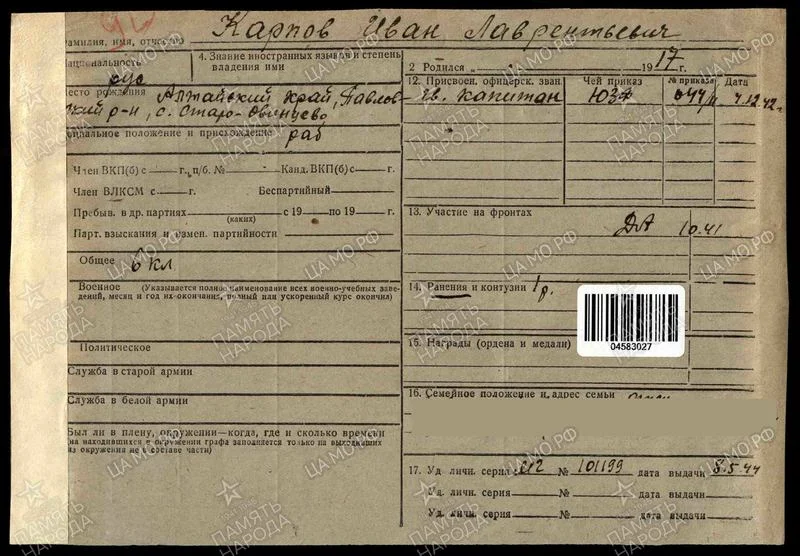 Карпов Иван Лаврентьевич
амилия, имя, отчество
ациональность
рус
4. Знание иностранных языков и степень
владения ими
2 Родился 1917 г.
есто рождения Алтайский край, Павлов-
ский р-н, с. Старо-
оциальное положение и происхождение раб
12. Присвоен. офицерск. зван. Чей приказ № приказа Дата
гв. капитан ЮЗФ 044/н 4.12.42г
Член ВКП(б) с г., п/б. № Канд. ВКП(б) с г.
Член ВЛКСМ с г. Беспартийный
Пребыв. в др. партиях с 19 по 19 г.
(каких)
Парт. взыскания и измен. партийности
13. Участие на фронтах
ДА 10.41
Общее 6 кл
Военное (Указывается полное наименование всех военно-учебных заве-
дений, месяц и год их окончания, полный или ускоренный курс окончил)
14. Ранения и контузии 1р.
04583027
15. Награды (ордена и медали)
Политическое
Служба в старой армии
Служба в белой армии
16. Семейное положение и адрес семьи
Был ли в плену, окружении—когда, где и сколько времени
(на находившихся в окружении графа заполняется только на выходивших
из окружения не в составе части)
17. Уд. личн. серия № 101199 дата выдачи 8.5.44
Уд. личн. серия № дата выдачи
Уд. личн. серия № дата выдачи
ПАМЯТЬ
НАРОДА
ЦАМО.РФ